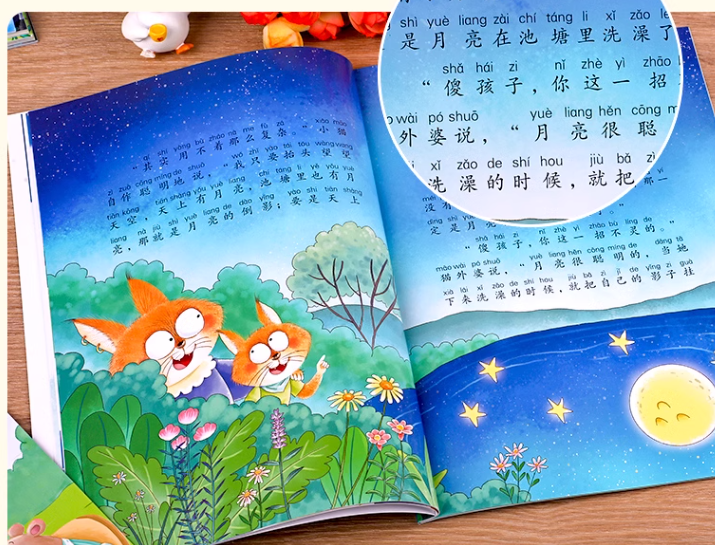 qí shí yòng bù zháo nà me fù zá xiǎo māo
“其实用不着那么复杂。”小猫
zì zuò cōng míng de shuō wǒ zhǐ yào tái tóu wàng wàng
自作聪明地说，“我只要抬头望望
tiān kōng tiān shàng yǒu yuè liang chí táng lǐ yě yǒu yuè
天空，天上有月亮，池塘里也有月
liang nà jiù shì yuè liang de dào yǐng yào shi tiān shàng
亮，那就是月亮的倒影；要是天上
shì yuè liang zài chí táng li xǐ zǎo le
是月亮在池塘里洗澡了
shǎ hái zi nǐ zhè yì zhāo
“傻孩子，你这一招
wài pó shuō yuè liang hěn cōng
外婆说，“月亮很聪
xǐ zǎo de shí hou jiù bǎ zì
洗澡的时候，就把
没有 那一
定是月亮 了。”
shǎ hái zi nǐ zhè yì zhāo bù líng de
“傻孩子，你这一招不灵的。”
māo wài pó shuō yuè liang hěn cōng míng de dāng tā
猫外婆说，“月亮很聪明的，当她
xià lái xǐ zǎo de shí hou jiù bǎ zì jǐ de yǐng zi guà
下来洗澡的时候，就把自己的影子挂